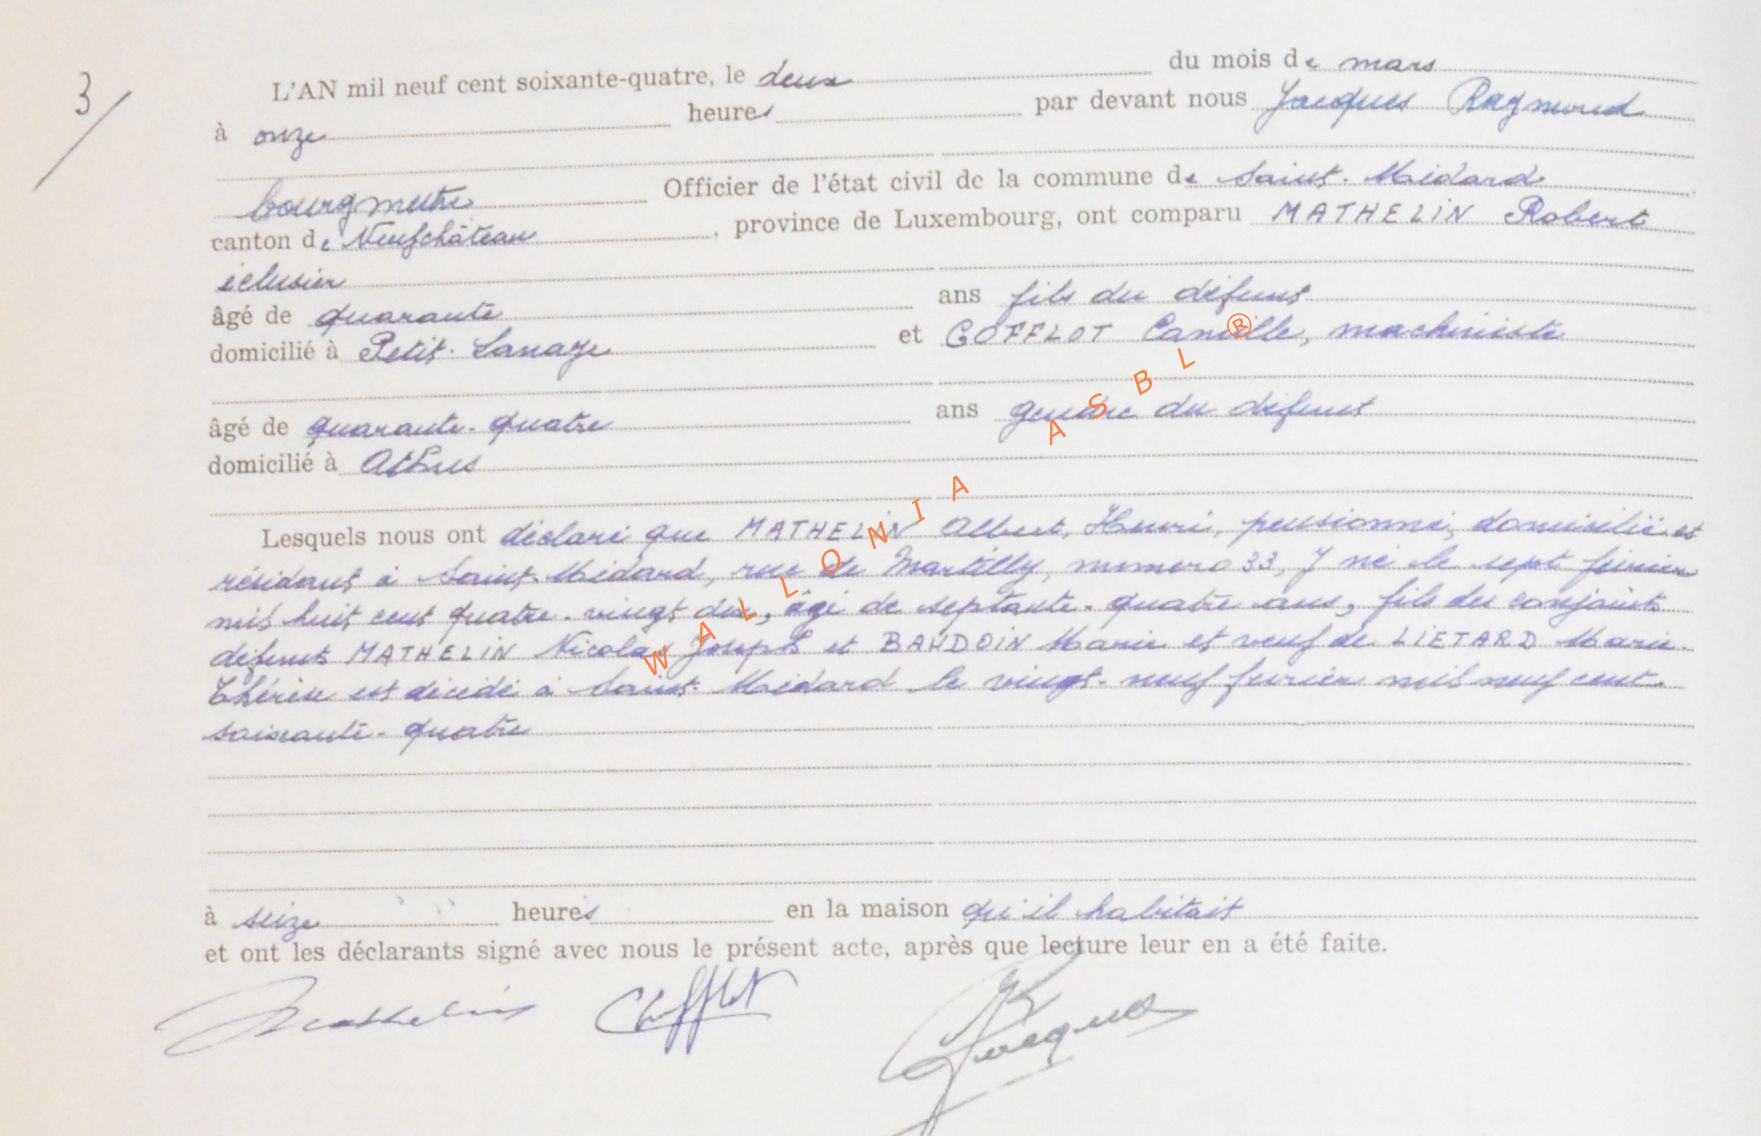 3/
L'AN mil neuf cent soixante-quatre, le deux du mois de mars
à onze heures par devant nous Jacques Raymond
bourgmestre Officier de l'état civil de la commune de Saint-Médard
canton de Neufchâteau, province de Luxembourg, ont comparu MATHELIN Robert
éclusier
âgé de quarante ans fils du défunt
domicilié à Petit-Lanaye et GOFFLOT Camille, machiniste
âgé de quarante-quatre ans gendre du défunt
domicilié à Athus
Lesquels nous ont déclaré que MATHELIN Albert, Henri, pensionné, domicilié et
résidant à Saint-Médard, rue de Martilly, numéro 33, y né le sept février
mil huit cent quatre-vingt dix, âgé de septante-quatre ans, fils des conjoints
défunts MATHELIN Nicolas Joseph et BAUDOIN Marie et veuf de LIETARD Marie-
Thérèse est décédé à Saint-Médard le vingt-neuf février mil neuf cent-
soixante-quatre
à seize heures en la maison qu'il habitait
et ont les déclarants signé avec nous le présent acte, après que lecture leur en a été faite.
Mathelin CGofflot RJacques
WALLONIA ASBL®